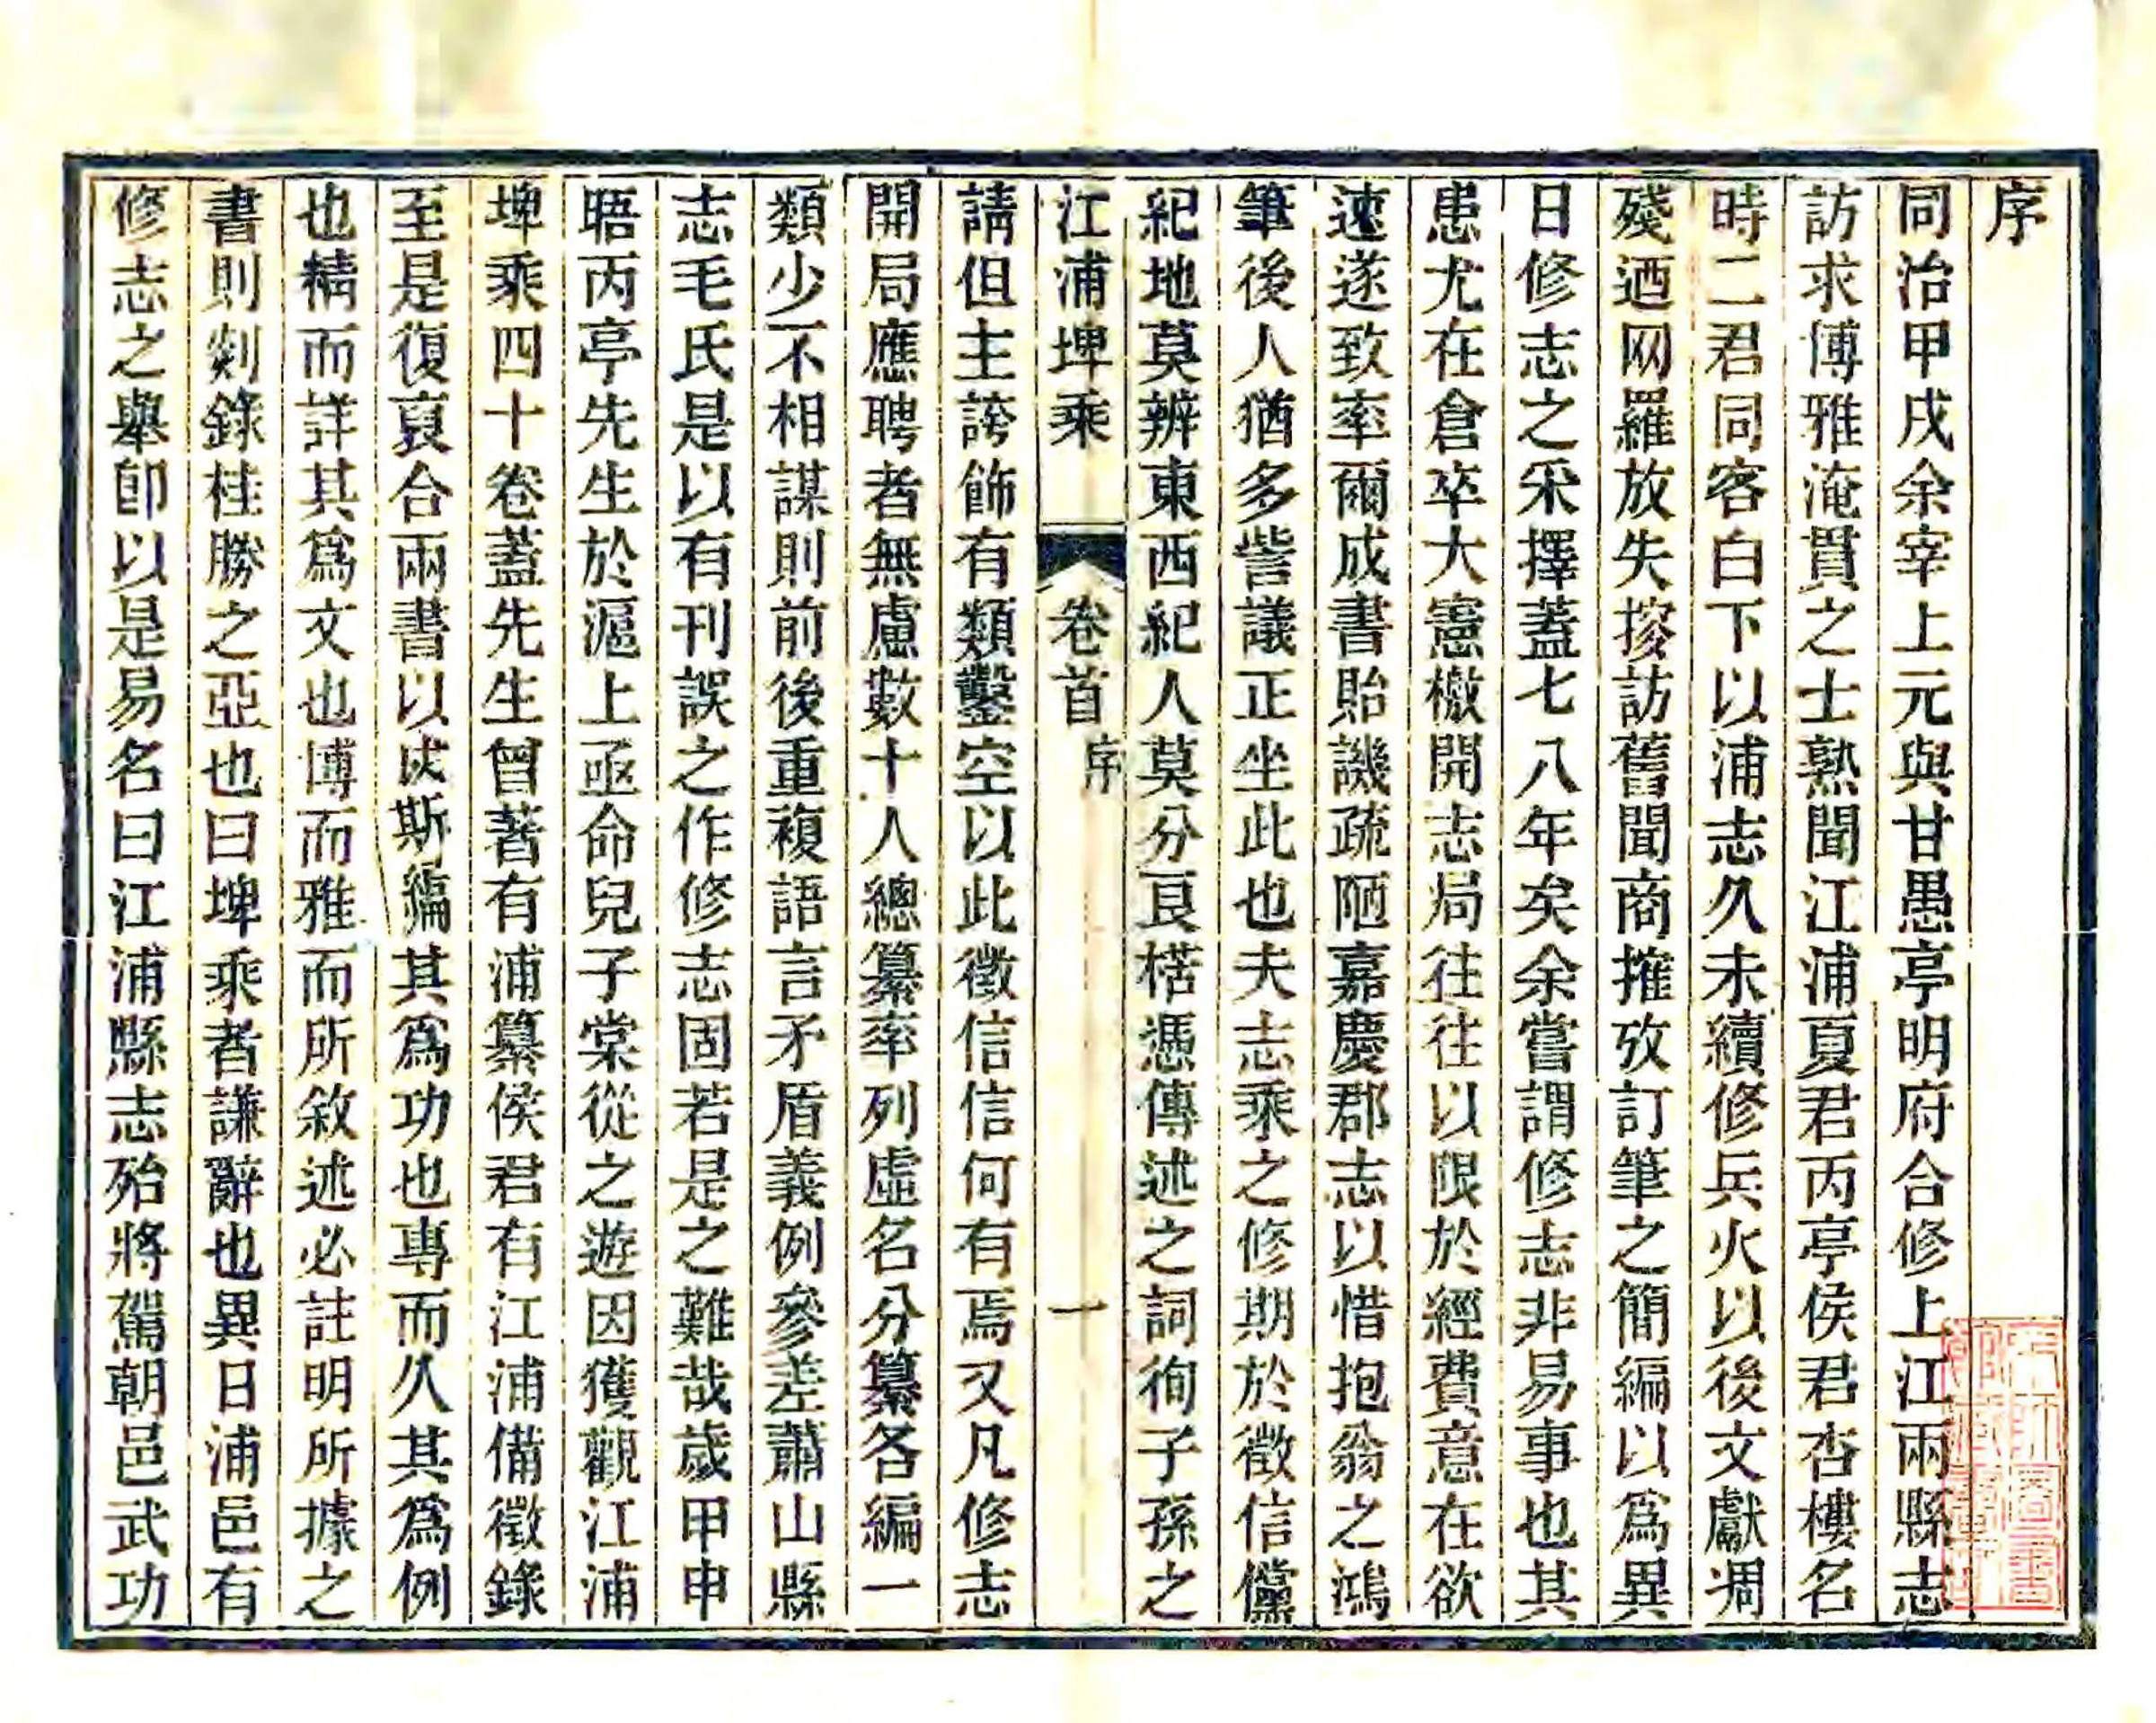 序
同治甲戌余宰上元與甘愚亭明府合修上江兩縣志
訪求博雅淹貫之士熟聞江浦夏君丙亭侯君杏樓名
時二君同客白下以浦志久未續修兵火以後文獻凋
殘迺网羅放失搜訪舊聞商搉攷訂筆之簡編以爲異
日修志之采擇蓋七八年矣余嘗謂修志非易事也其
患尤在倉卒大憲檄開志局往往以限於經費意在欲
速遂致率爾成書貽譏疏陋嘉慶郡志以惜抱翁之鴻
筆後人猶多訾議正坐此也夫志乘之修期於徵信儻
紀地莫辨東西紀人莫分良楛憑傳述之詞徇子孫之
江浦埤乘 卷首 序 一
請但主誇飾有類鑿空以此徵信信何有焉又凡修志
開局應聘者無慮數十人總纂率列虛名分纂各編一
類少不相謀則前後重複語言矛盾義例參差蕭山縣
志毛氏是以有刊誤之作修志固若是之難哉歲甲申
晤丙亭先生於滬上亟命兒子棠從之遊因獲觀江浦
埤乘四十卷蓋先生曾著有浦纂侯君有江浦備徵錄
至是復裒合兩書以成斯編其爲功也專而久其爲例
也精而詳其爲文也博而雅而所敘述必註明所據之
書則剡錄桂勝之亞也曰埤乘者謙辭也異日浦邑有
修志之舉卽以是易名曰江浦縣志殆將駕朝邑武功